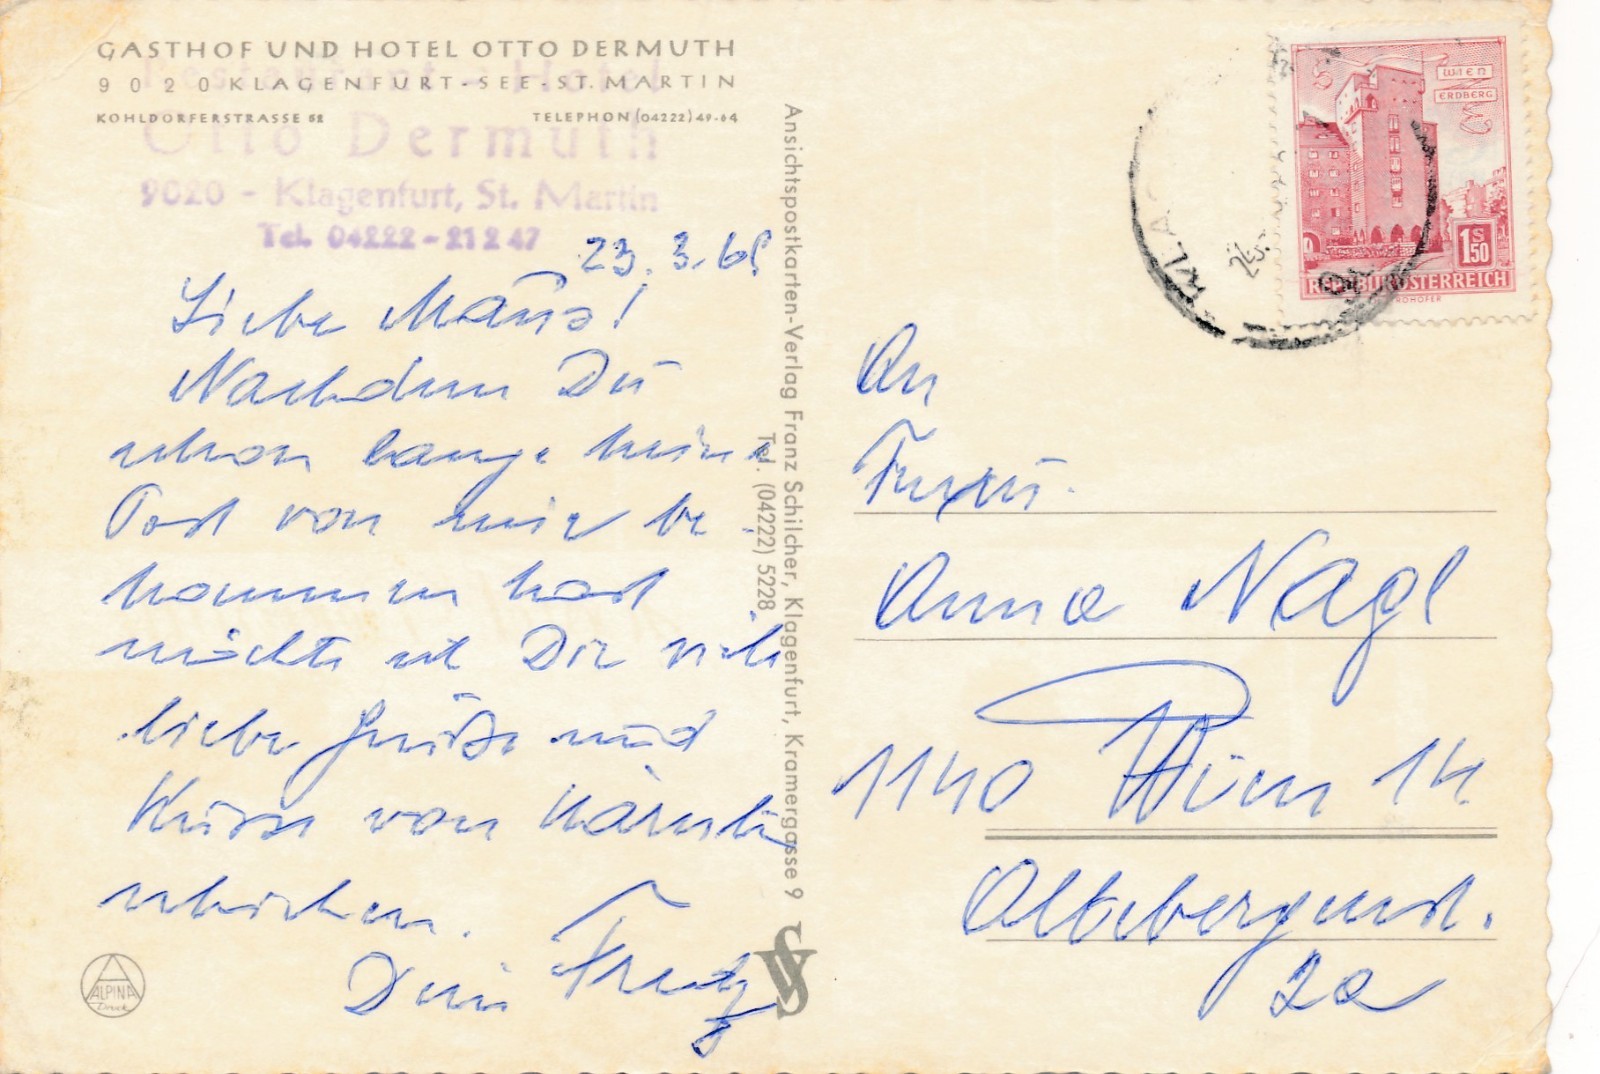 GASTHOF UND HOTEL OTTO DERMUTH
9020 KLAGENFURT-SEE-ST. MARTIN
KOHLDORFERSTRASSE 52 TELEPHON (04222) 49-64
Restaurant - Hotel
Otto Dermuth
9020 - Klagenfurt, St. Martin
Tel. 04222 - 21 2 47
23. 3. 68
Liebe Maus!
Nachdem Du
schon lange keine
Post von mir be
kommen hast
möchte ich Dir viele
liebe Grüße und
Küsse von Kärnten
schicken.
Dein Franz
ALPINA
Druck
Ansichtspostkarten-Verlag Franz Schilcher, Klagenfurt, Kramergasse 9
Tel. (04222) 5228
WIEN
ERDBERG
S
1 50
REPUBLIK ÖSTERREICH
KLA
An
Frau
Anna Nagl
1140 Wien 14
2a